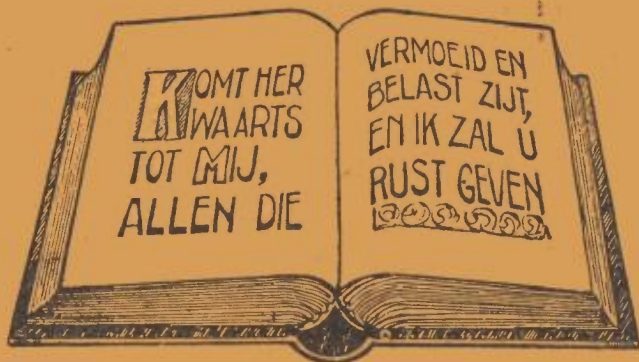 KOMT HER
WAARTS
TOT MIJ,
ALLEN DIE
VERMOEID EN
BELAST ZIJT,
EN IK ZAL U
RUST GEVEN